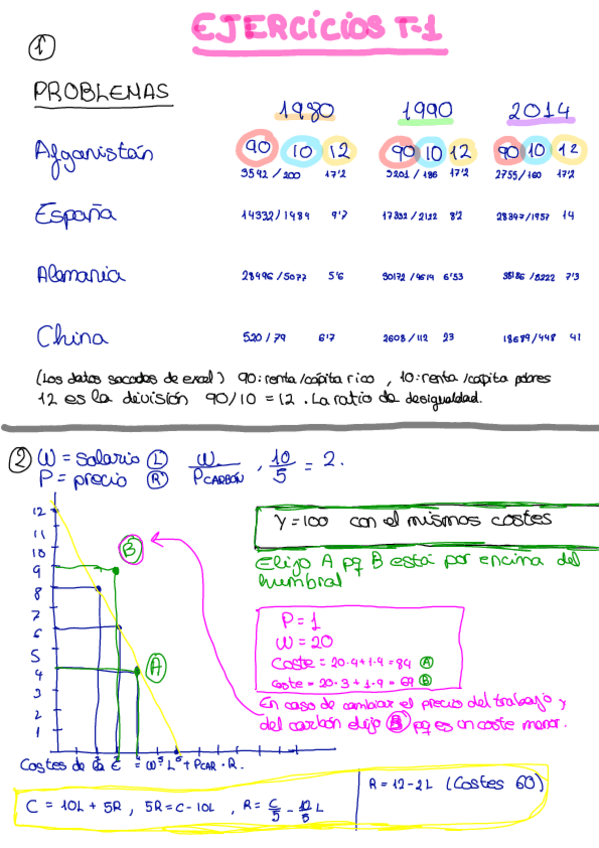 EJERCICIOS T-1
1
PROBLEMAS
1980 1990 2014
Afganistán 90 10 12 90 10 12 90 10 12
3542/200 17'2 3201/186 17'2 2755/160 17'2
España 14332/1484 9'7 17332/2132 8'2 28397/1957 14
Alemania 28496/5077 5'6 30172/4619 6'53 7'3
China 520/79 6'7 2608/112 23 18689/448 41
(Los datos sacados de excel) 90: renta/cápita rico, 10: renta/cápita pobres
12 es la división 90/10 = 12. La ratio de desigualdad.
2 W = salario (L) W/PCARBÓN, 10/5 = 2.
P = precio (R)
Y=100 con el mismos costes
Elijo A pq B está por encima del
humbral
12
11
10
9
8
7
6
5
4
3
2
1
B
A
P=1
W=20
Coste = 20·4+1·4=84 A
coste = 20·3+1·9=69 B
En caso de cambiar el precio del trabajo y
del carbón elijo B pq es un coste menor.
Costes de la E = W·L + PCAR·R.
C = 10L + 5R, 5R=C-10L, R= C/5 - 10/5 L
R=12-2L (Costes 60)